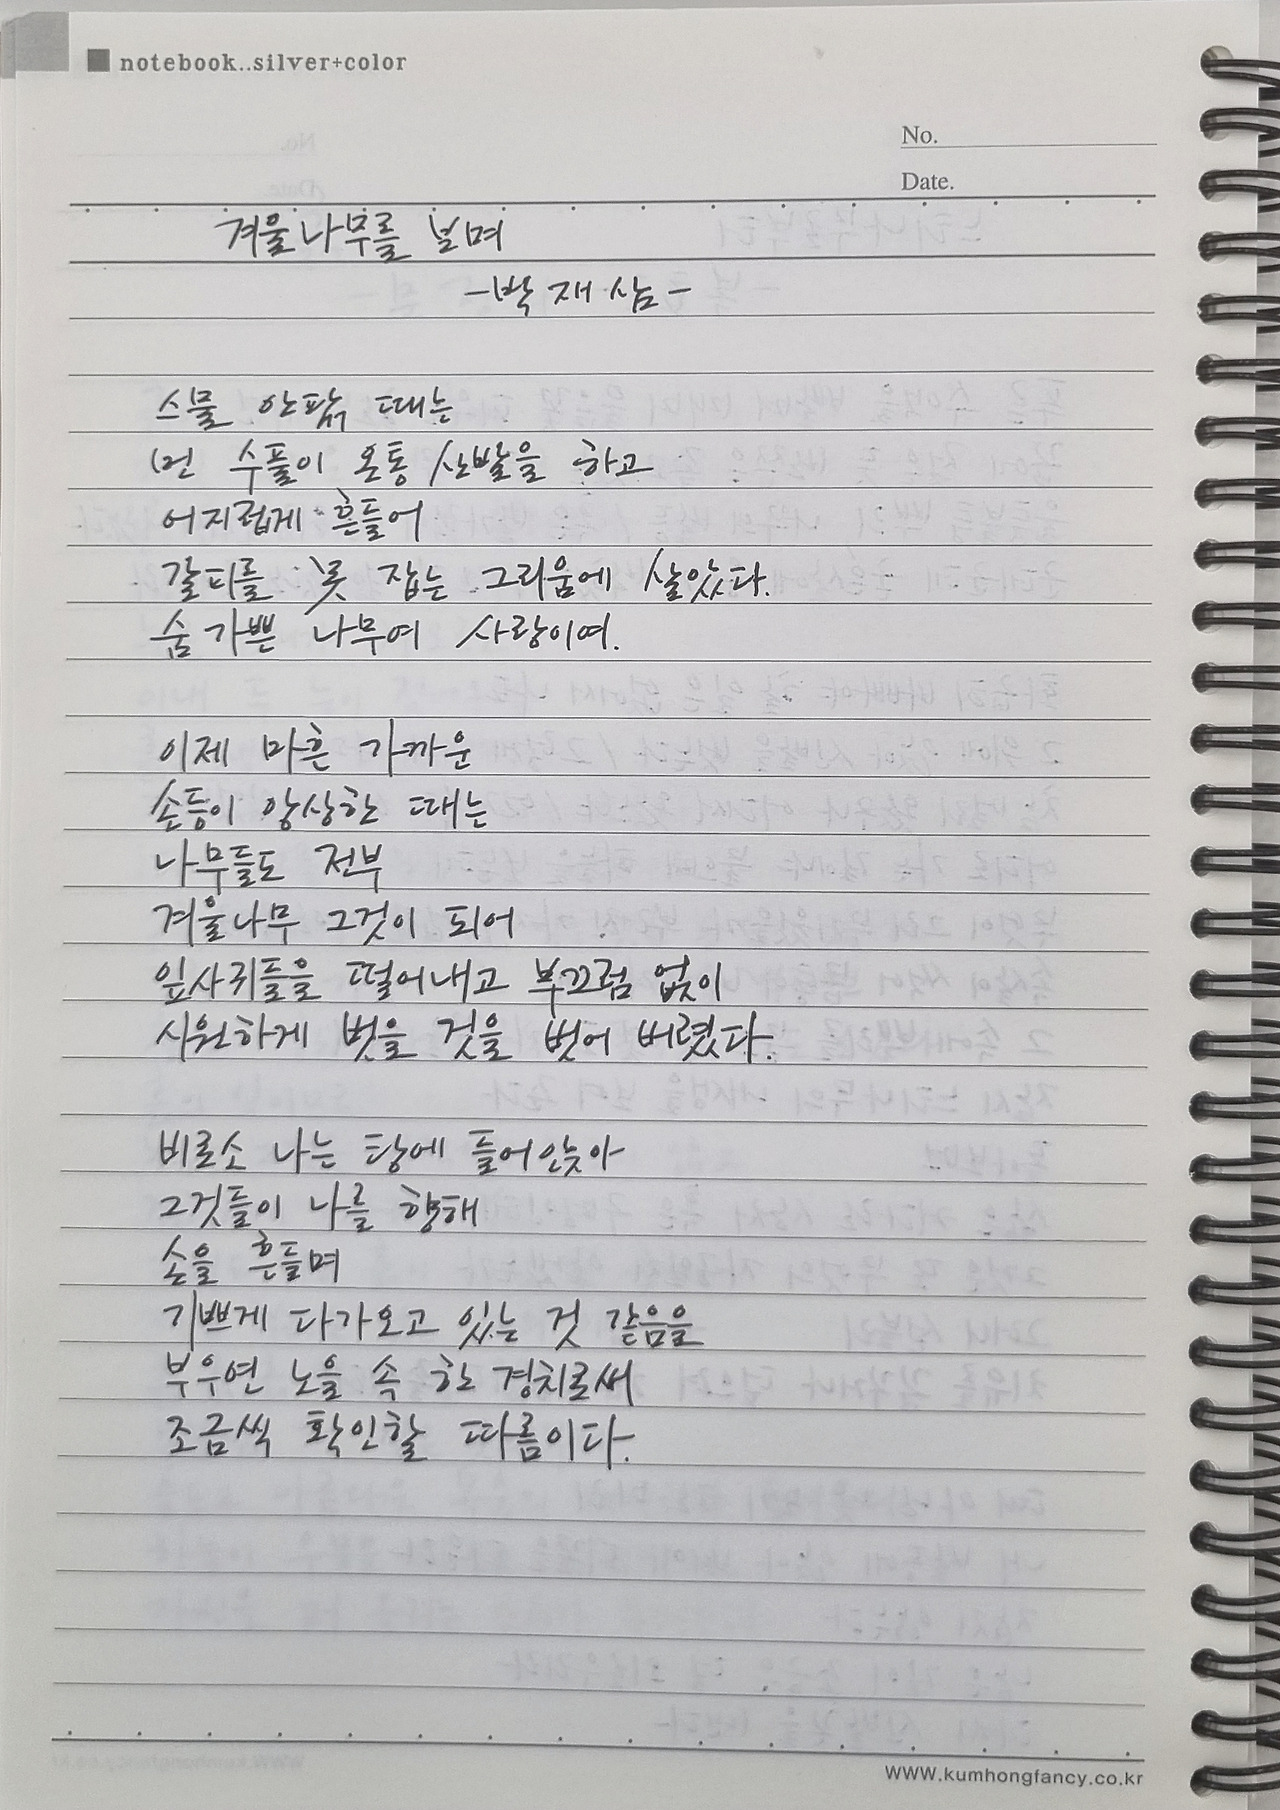 notebook..silver+color
No.
Date.
겨울나무를 보며
-박재삼-
스물 안팎 때는
먼 수풀이 온통 산발을 하고
어지럽게 흔들어
갈피를 못 잡는 그리움에 살았다.
숨가쁜 나무여 사랑이여.
이제 마흔 가까운
손등이 앙상한 때는
나무들도 전부
겨울나무 그것이 되어
잎사귀들을 떨어내고 부끄럼 없이
시원하게 벗을 것을 벗어 버렸다.
비로소 나는 탕에 들어앉아
그것들이 나를 향해
손을 흔들며
기쁘게 다가오고 있는 것 같음을
부우연 노을 속 한 경치로써
조금씩 확인할 따름이다.
WWW.kumhongfancy.co.kr